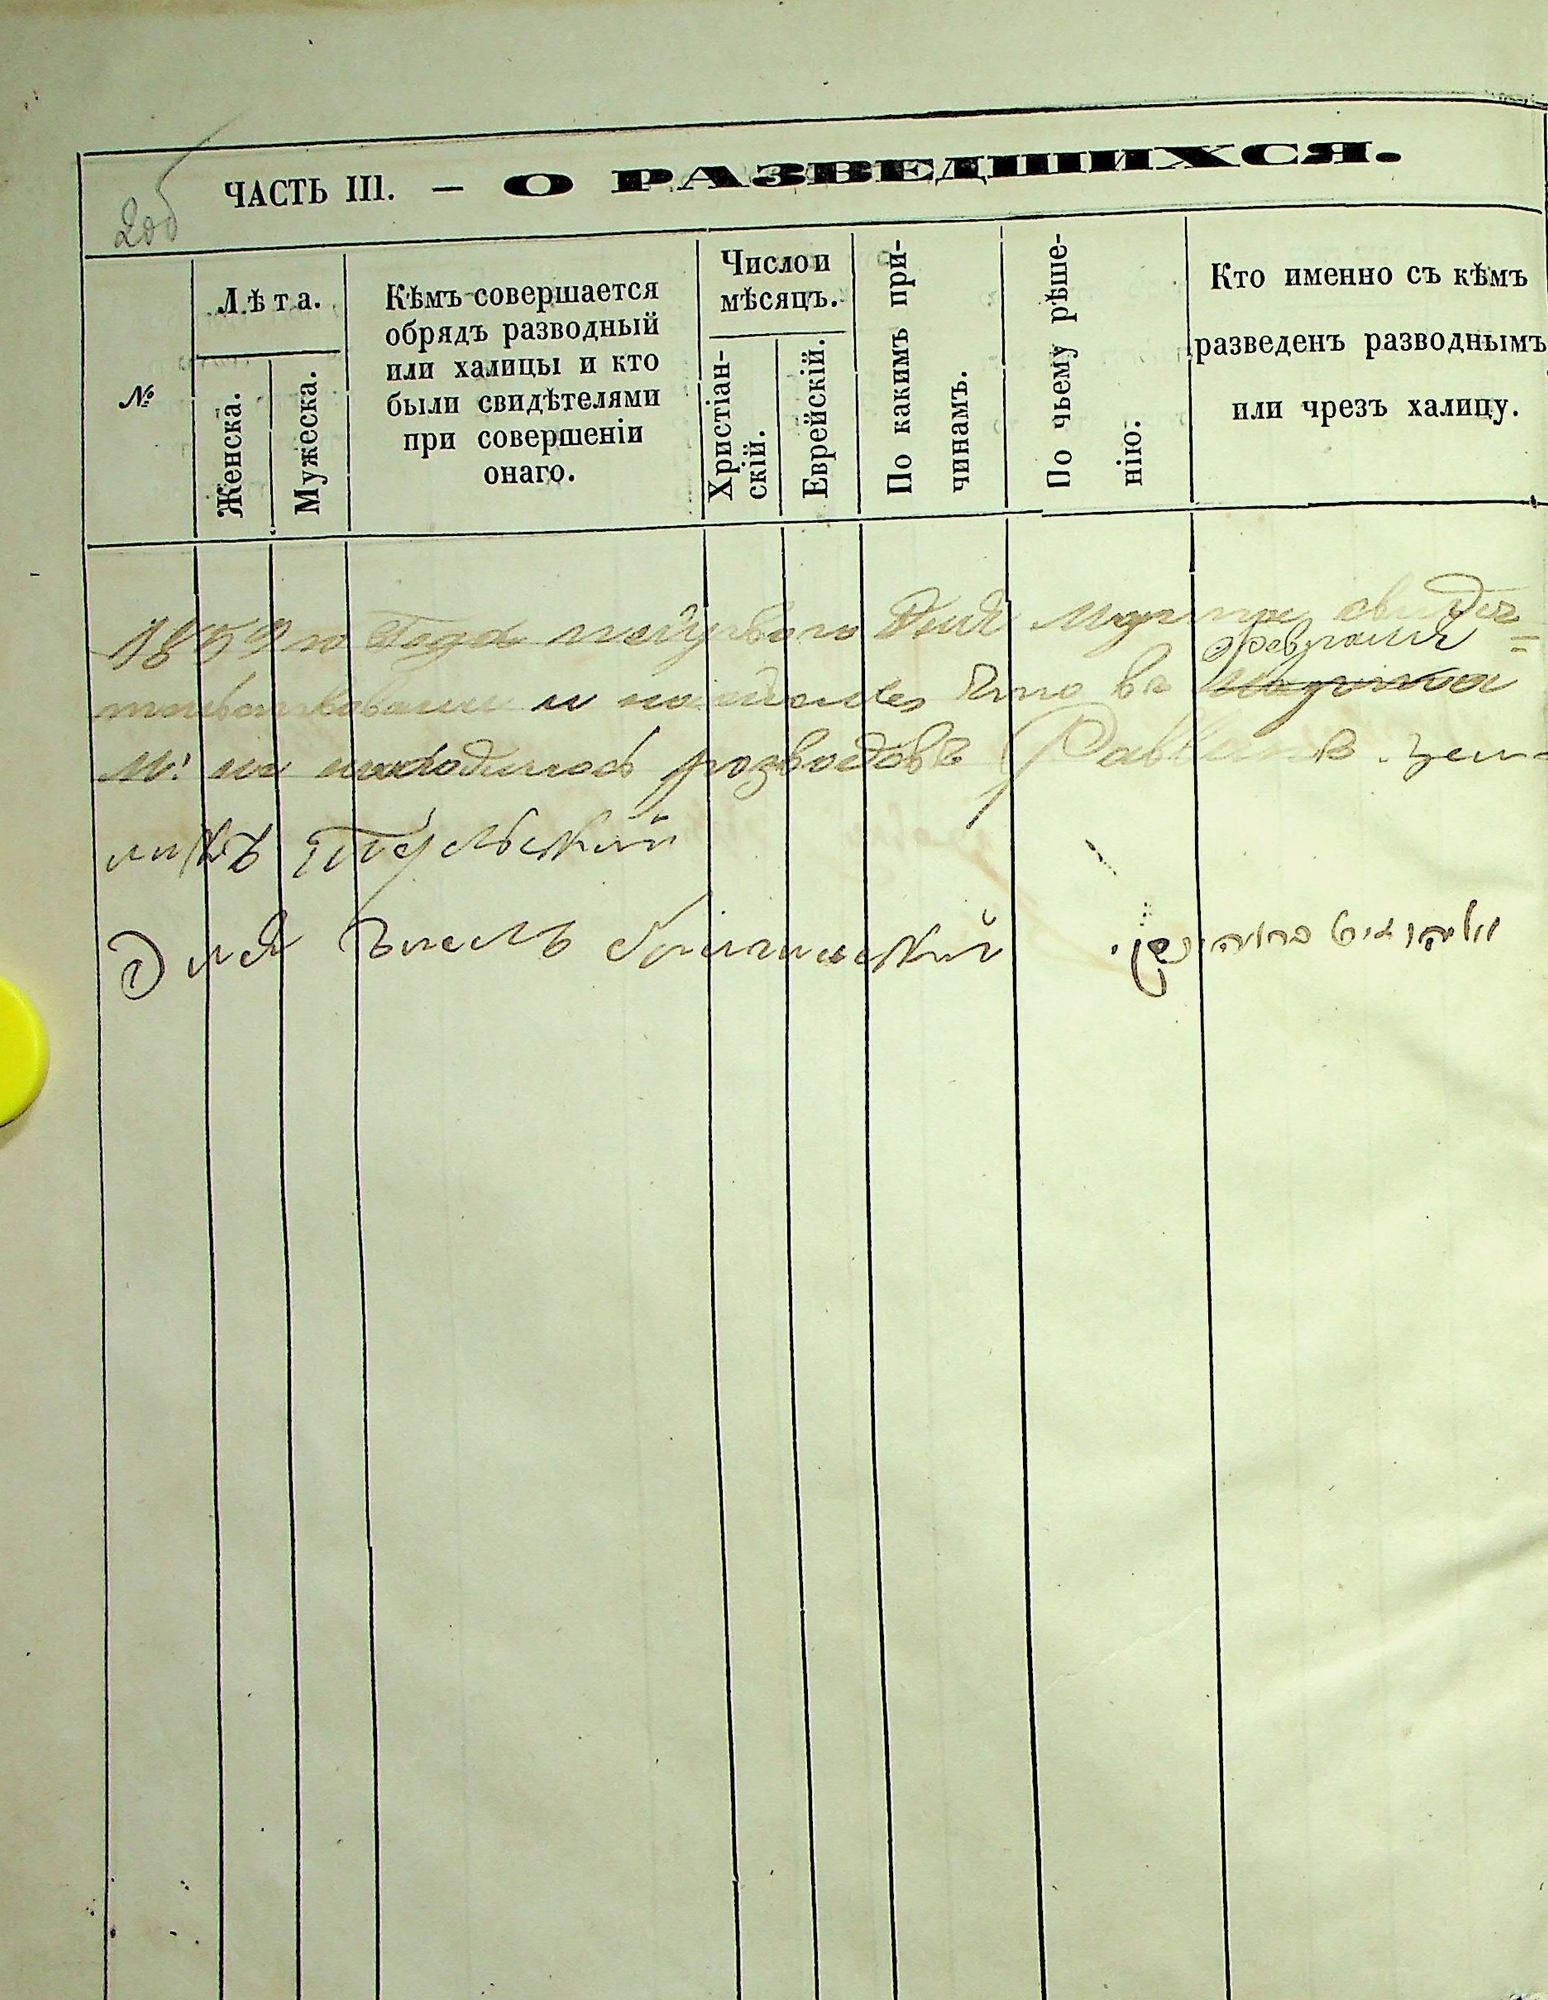 ЧАСТЬ III. — О РАЗВЕДШИХСЯ.
№
Лѣта.
Женска.
Мужеска.
Кѣмъ совершается
обрядъ разводный
или халицы и кто
были свидѣтелями
при совершеніи
онаго.
Число и
мѣсяцъ.
Христіан-
скій.
Еврейскій.
По какимъ при-
чинамъ.
По чьему рѣше-
нію.
Кто именно съ кѣмъ
разведенъ разводнымъ
или чрезъ халицу.
1859 го Года первого Дня Марта свидѣ=
Февраля
тельствовали и что въ
М: не находилось розводовъ Раввинъ